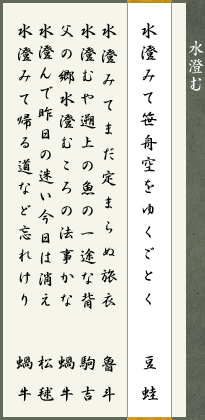 水澄む
水澄みて笹舟空をゆくごとく 豆蛙
水澄みてまだ定まらぬ旅衣 魯斗
水澄むや遡上の魚の一途な背 駒吉
父の郷水澄むころの法事かな 蝸牛
水澄んで昨日の迷い今日は消え 松毬
水澄みて帰る道など忘れけり 蝸牛